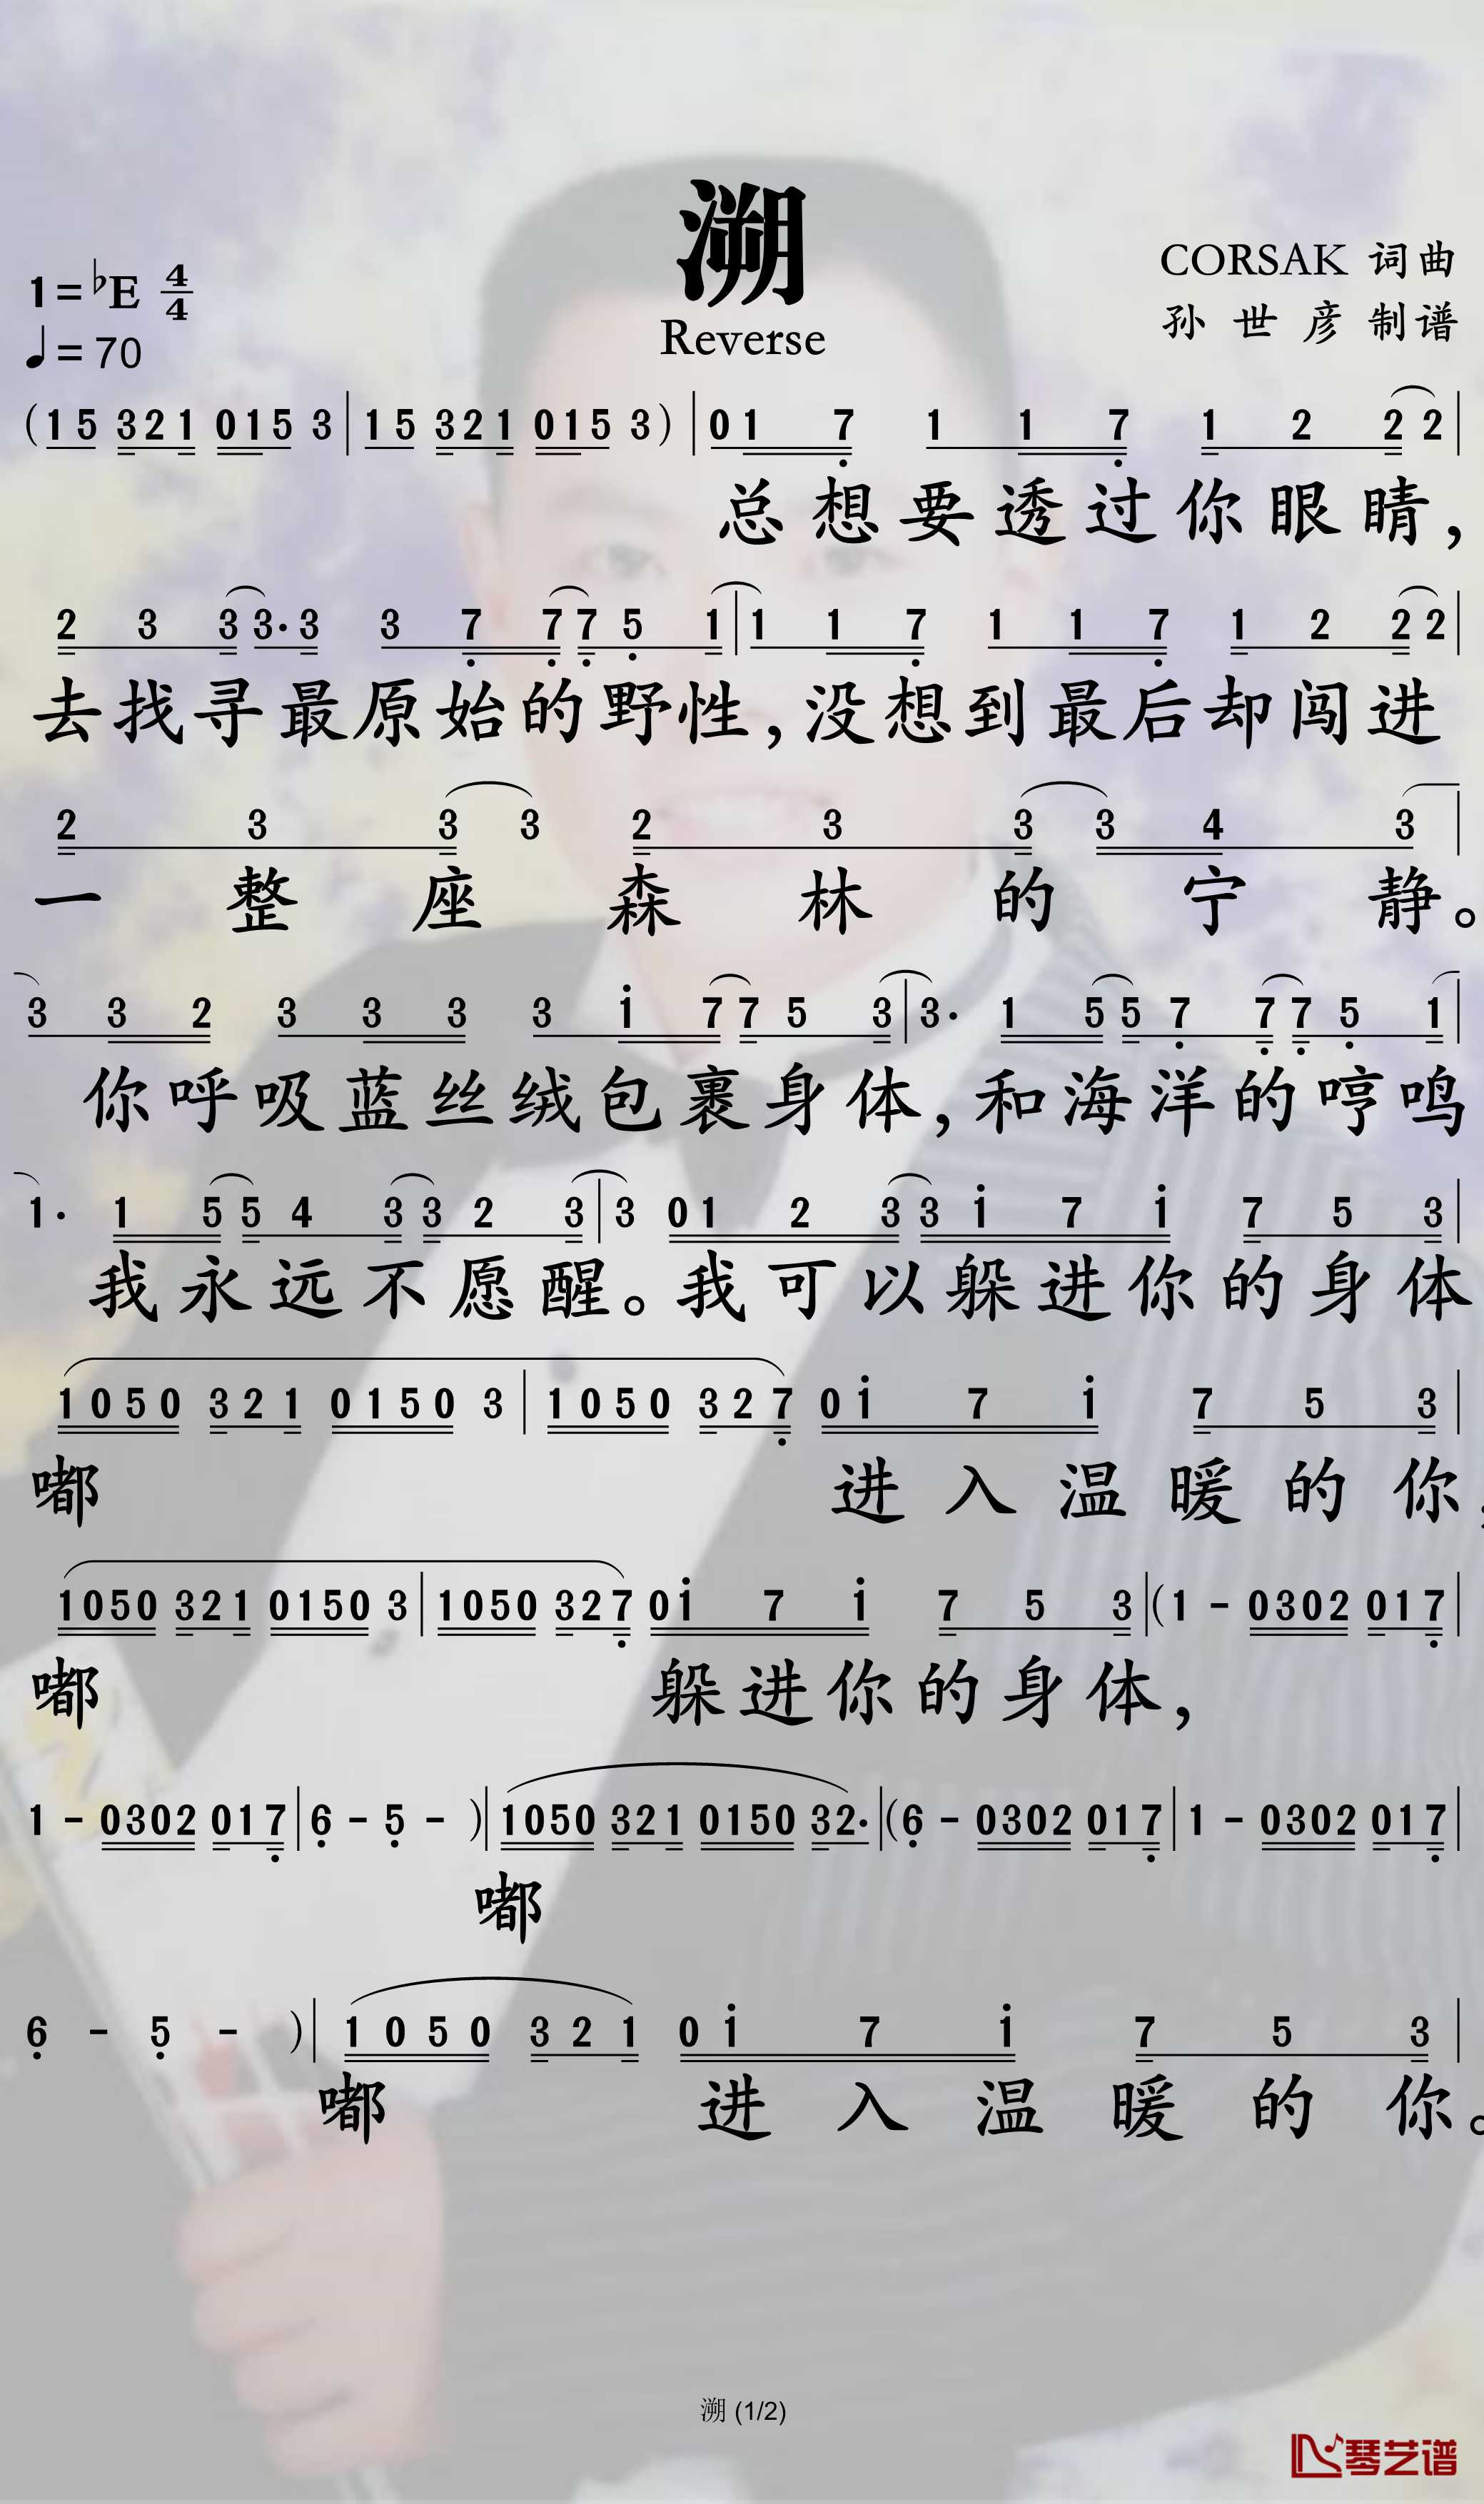 溯
Reverse
1=♭E 4/4
♩=70
CORSAK 词曲
孙世彦 制谱
(15 321 015 3|15 321 015 3)|01 7 1 1 7 1 2 2 2|
总想要透过你眼睛，
2 3 3 3· 3 3 7 7 7 5 1|1 1 7 1 1 7 1 2 2 2|
去找寻最原始的野性，没想到最后却闯进
2 3 3 3 2 3 3 3 4 3|
一整座森林的宁静。
3 3 2 3 3 3 3 1 7 7 5 3|3· 1 5 5 7 7 7 5 1|
你呼吸蓝丝绒包裹身体，和海洋的哼鸣
1· 1 5 5 4 3 3 2 3|3 01 2 3 3 1 7 1 7 5 3|
我永远不愿醒。我可以躲进你的身体
1050 321 0150 3|1050 327 01 7 1 7 5 3|
嘟 进入温暖的你，
1050 321 0150 3|1050 327 01 7 1 7 5 3|(1 - 0302 017|
嘟 躲进你的身体，
1 - 0302 017|6 - 5 - )|1050 321 0150 32·|(6 - 0302 017|1 - 0302 017|
嘟
6 - 5 - )|1050 321 01 7 1 7 5 3|
嘟 进入温暖的你。
溯 (1/2)
琴艺谱